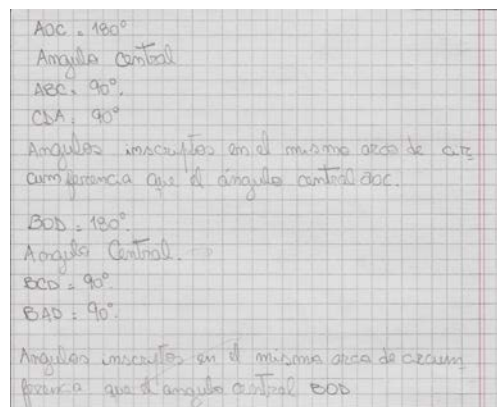 AOC = 180°
Angulo Central
ABC = 90°.
CDA = 90°
Angulos inscriptos en el mismo arco de cir
cumferencia que el ángulo central aoc.
BOD = 180°.
Angulo Central.
BCD = 90°.
BAD = 90°.
Angulos inscriptos en el mismo arco de circum
ferencia que el angulo central BOD